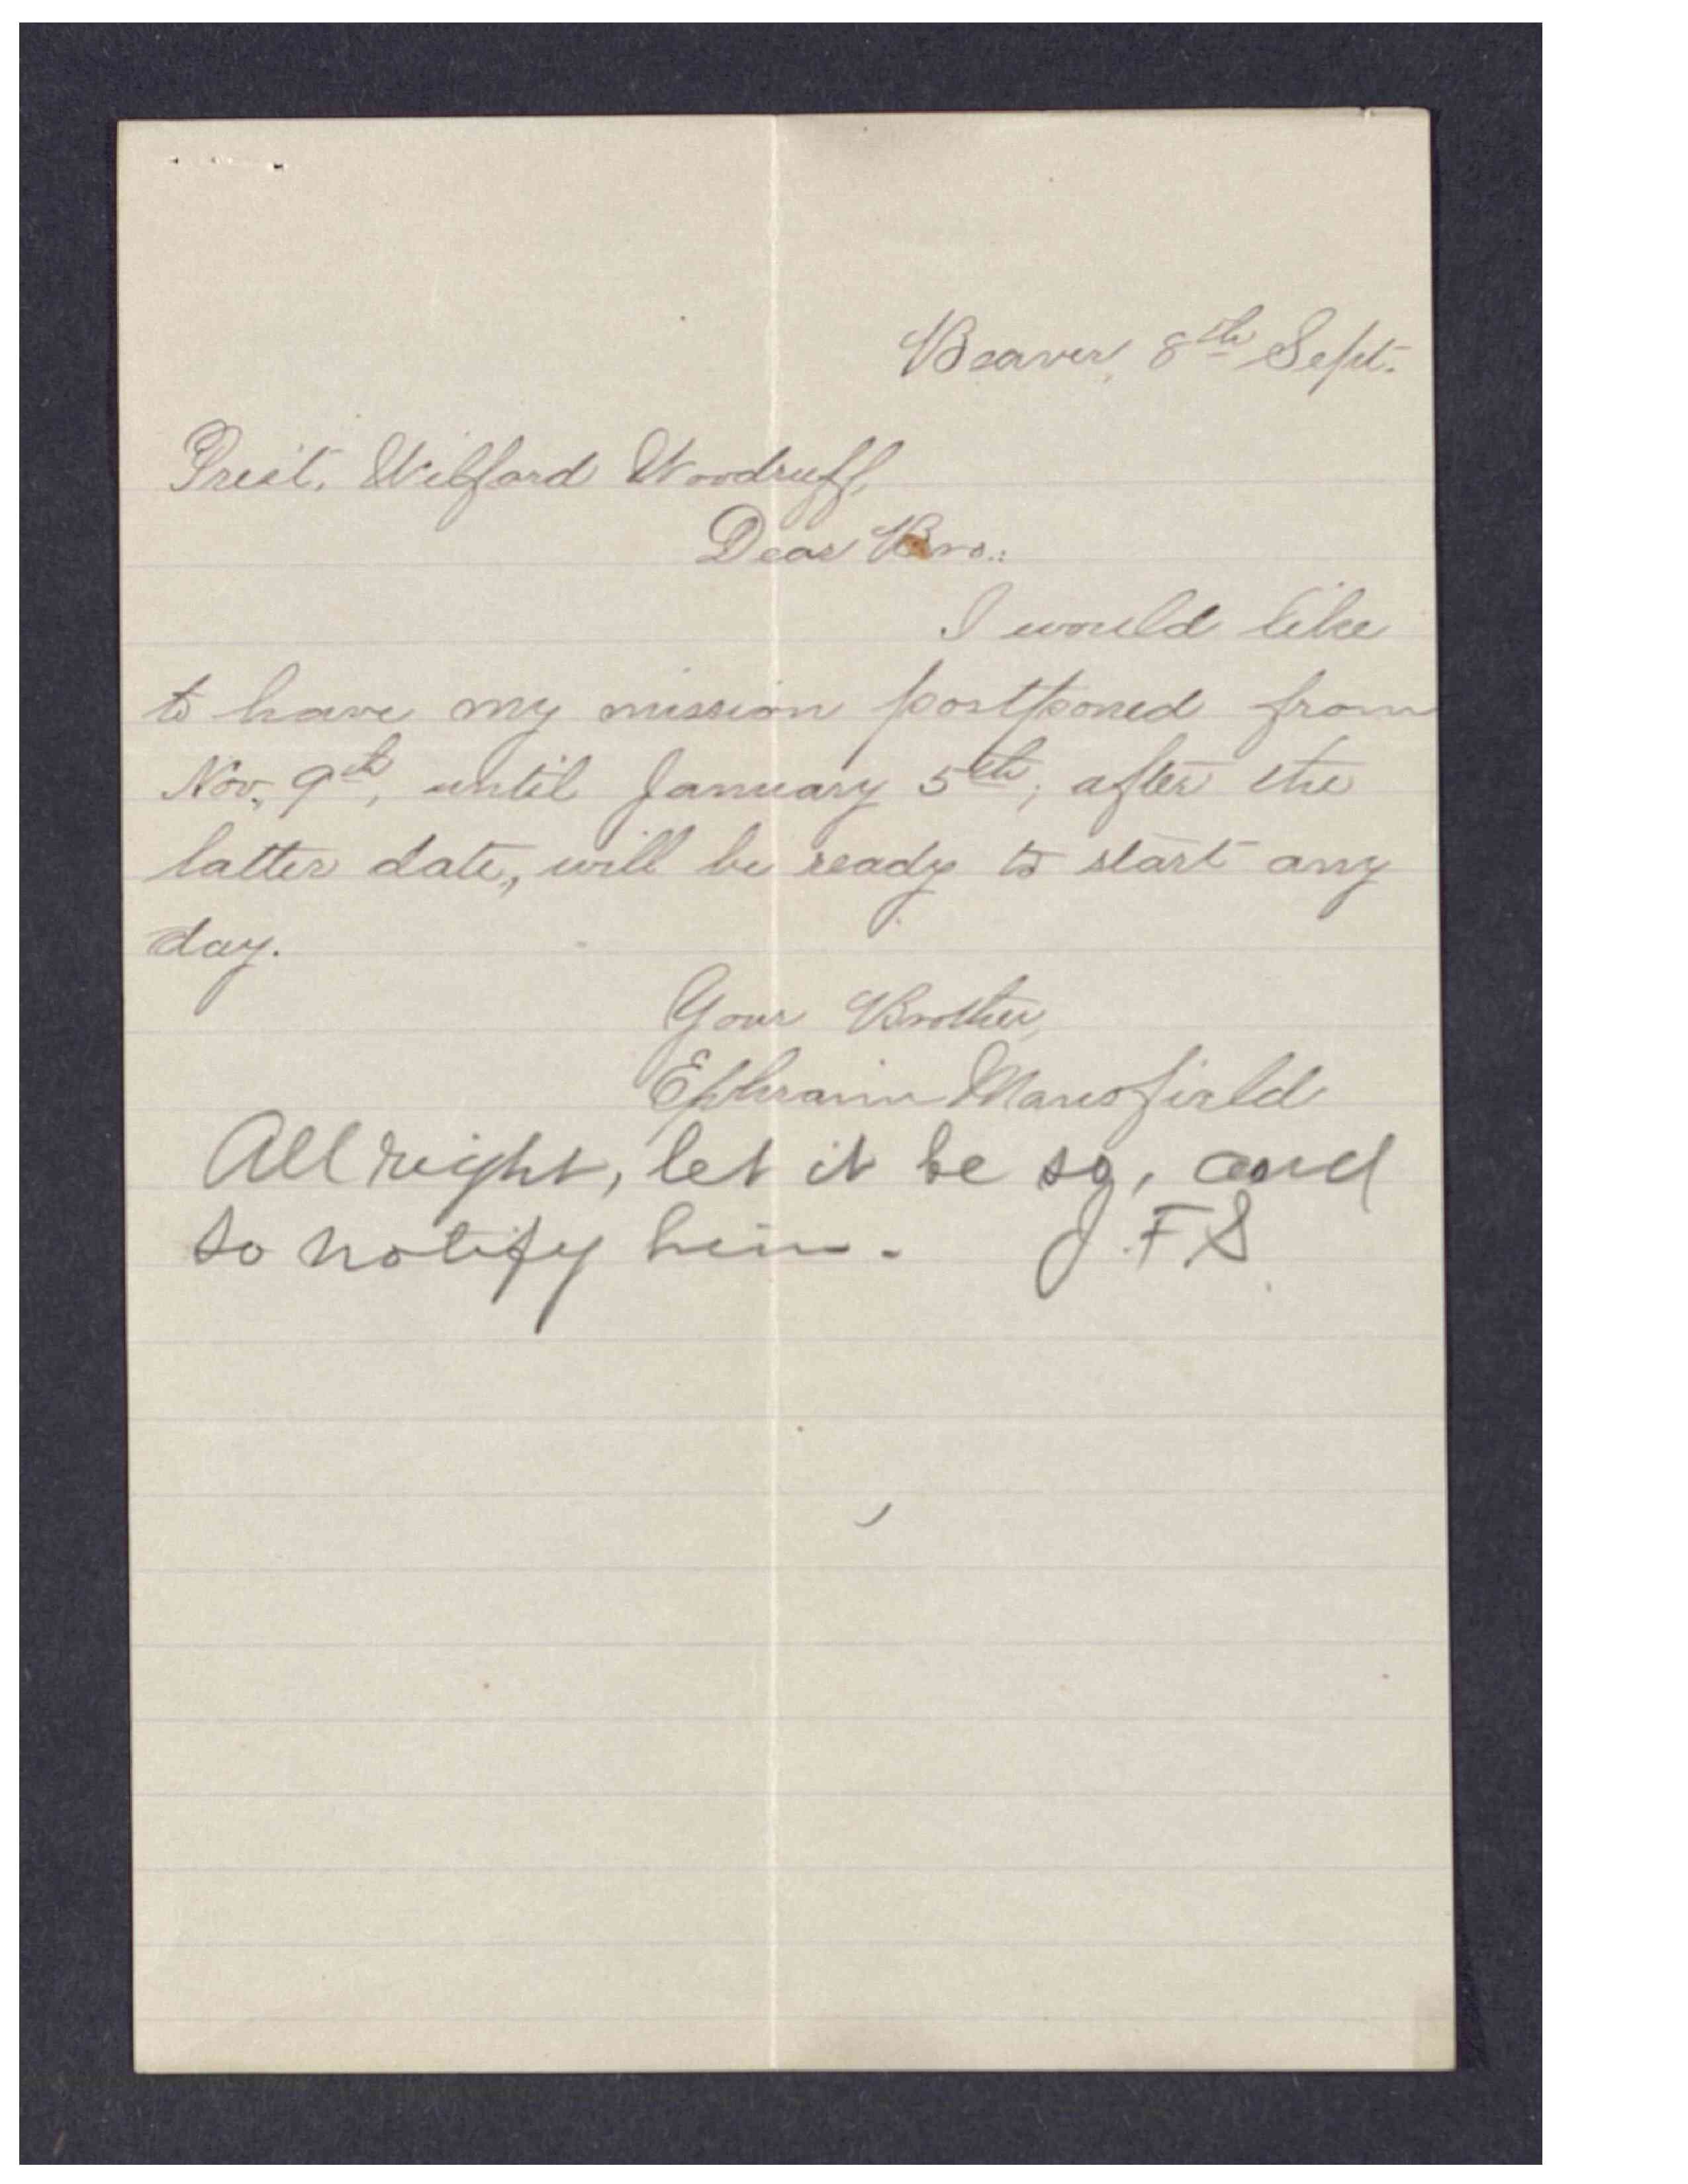 Beaver, 8th Sept.
Prest. Wilford Woodruff,
Dear Bro.:
I would like
to have my mission postponed from
Nov. 9th, until January 5th; after the
latter date, will be ready to start any
day.
Your Brother,
Ephraim Mansfield
All right, let it be so, and
so notify him. J. F S